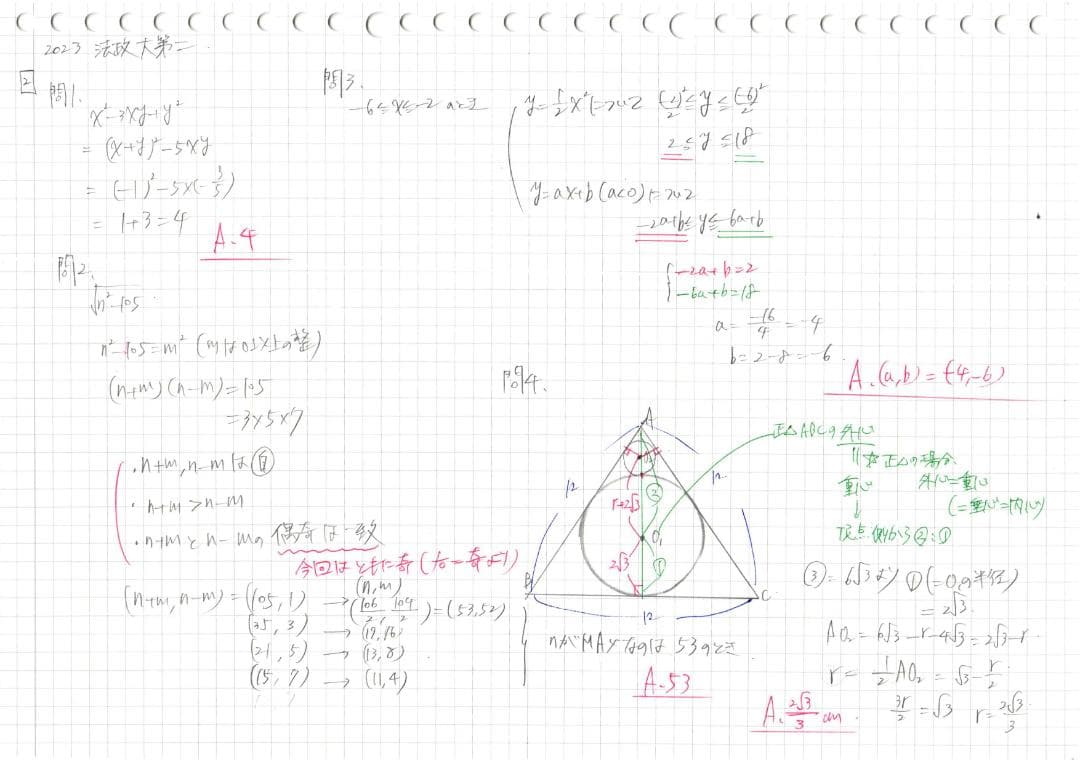 2023 法政大第二
2
問1.
x²-3xy+y²
= (x+y)²-5xy
= (-1)²-5×(-3/5)
= 1+3=4
A.4
問2.
√n²-105
n²-105=m² (mは0以上の整)
(n+m)(n-m)=105
=3×5×7
・n+m, n-mは自
・n+m>n-m
・n+mとn-mの偶奇は一致
今回はともに奇(右=奇より)
(n+m, n-m)=(105, 1) → (106/2, 104/2)=(53,52)
(n, m)
(35, 3) → (19,16)
(21, 5) → (13,8)
(15, 7) → (11,4)
nがMAXなのは53のとき
A.53
問3.
-6≦x≦-2 のとき
y=1/2x²について (-2)²/2≦y≦(-6)²/2
2≦y≦18
y=ax+b(a<0)について
-2a+b≦y≦-6a+b
-2a+b=2
-6a+b=18
a=-16/4=-4
b=2-8=-6.
A.(a,b)=(-4,-6)
問4.
A
O₂
12
12
r+2√3
②
O₁
2√3
①
B
C
12
正△ABCの外心
||
☆正△の場合
重心
外心=重心
(=垂心=内心)
↓
頂点側から②:①
③=6√3より①(=O₁の半径)
=2√3.
AO₂=6√3-r-4√3=2√3-r.
r=1/2AO₂=√3-r/2
3r/2=√3 r=2√3/3
A.2√3/3 cm